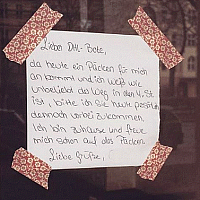 Lieber DHL-Bote,
da heute ein Päckchen für mich
ankommt und ich weiß wie
unbeliebt der Weg in den 4. St.
ist, bitte ich sie heute
dennoch vorbei zu kommen.
Ich bin zuhause und freue
mich schon auf das Päckchen.
Liebe Grüße,